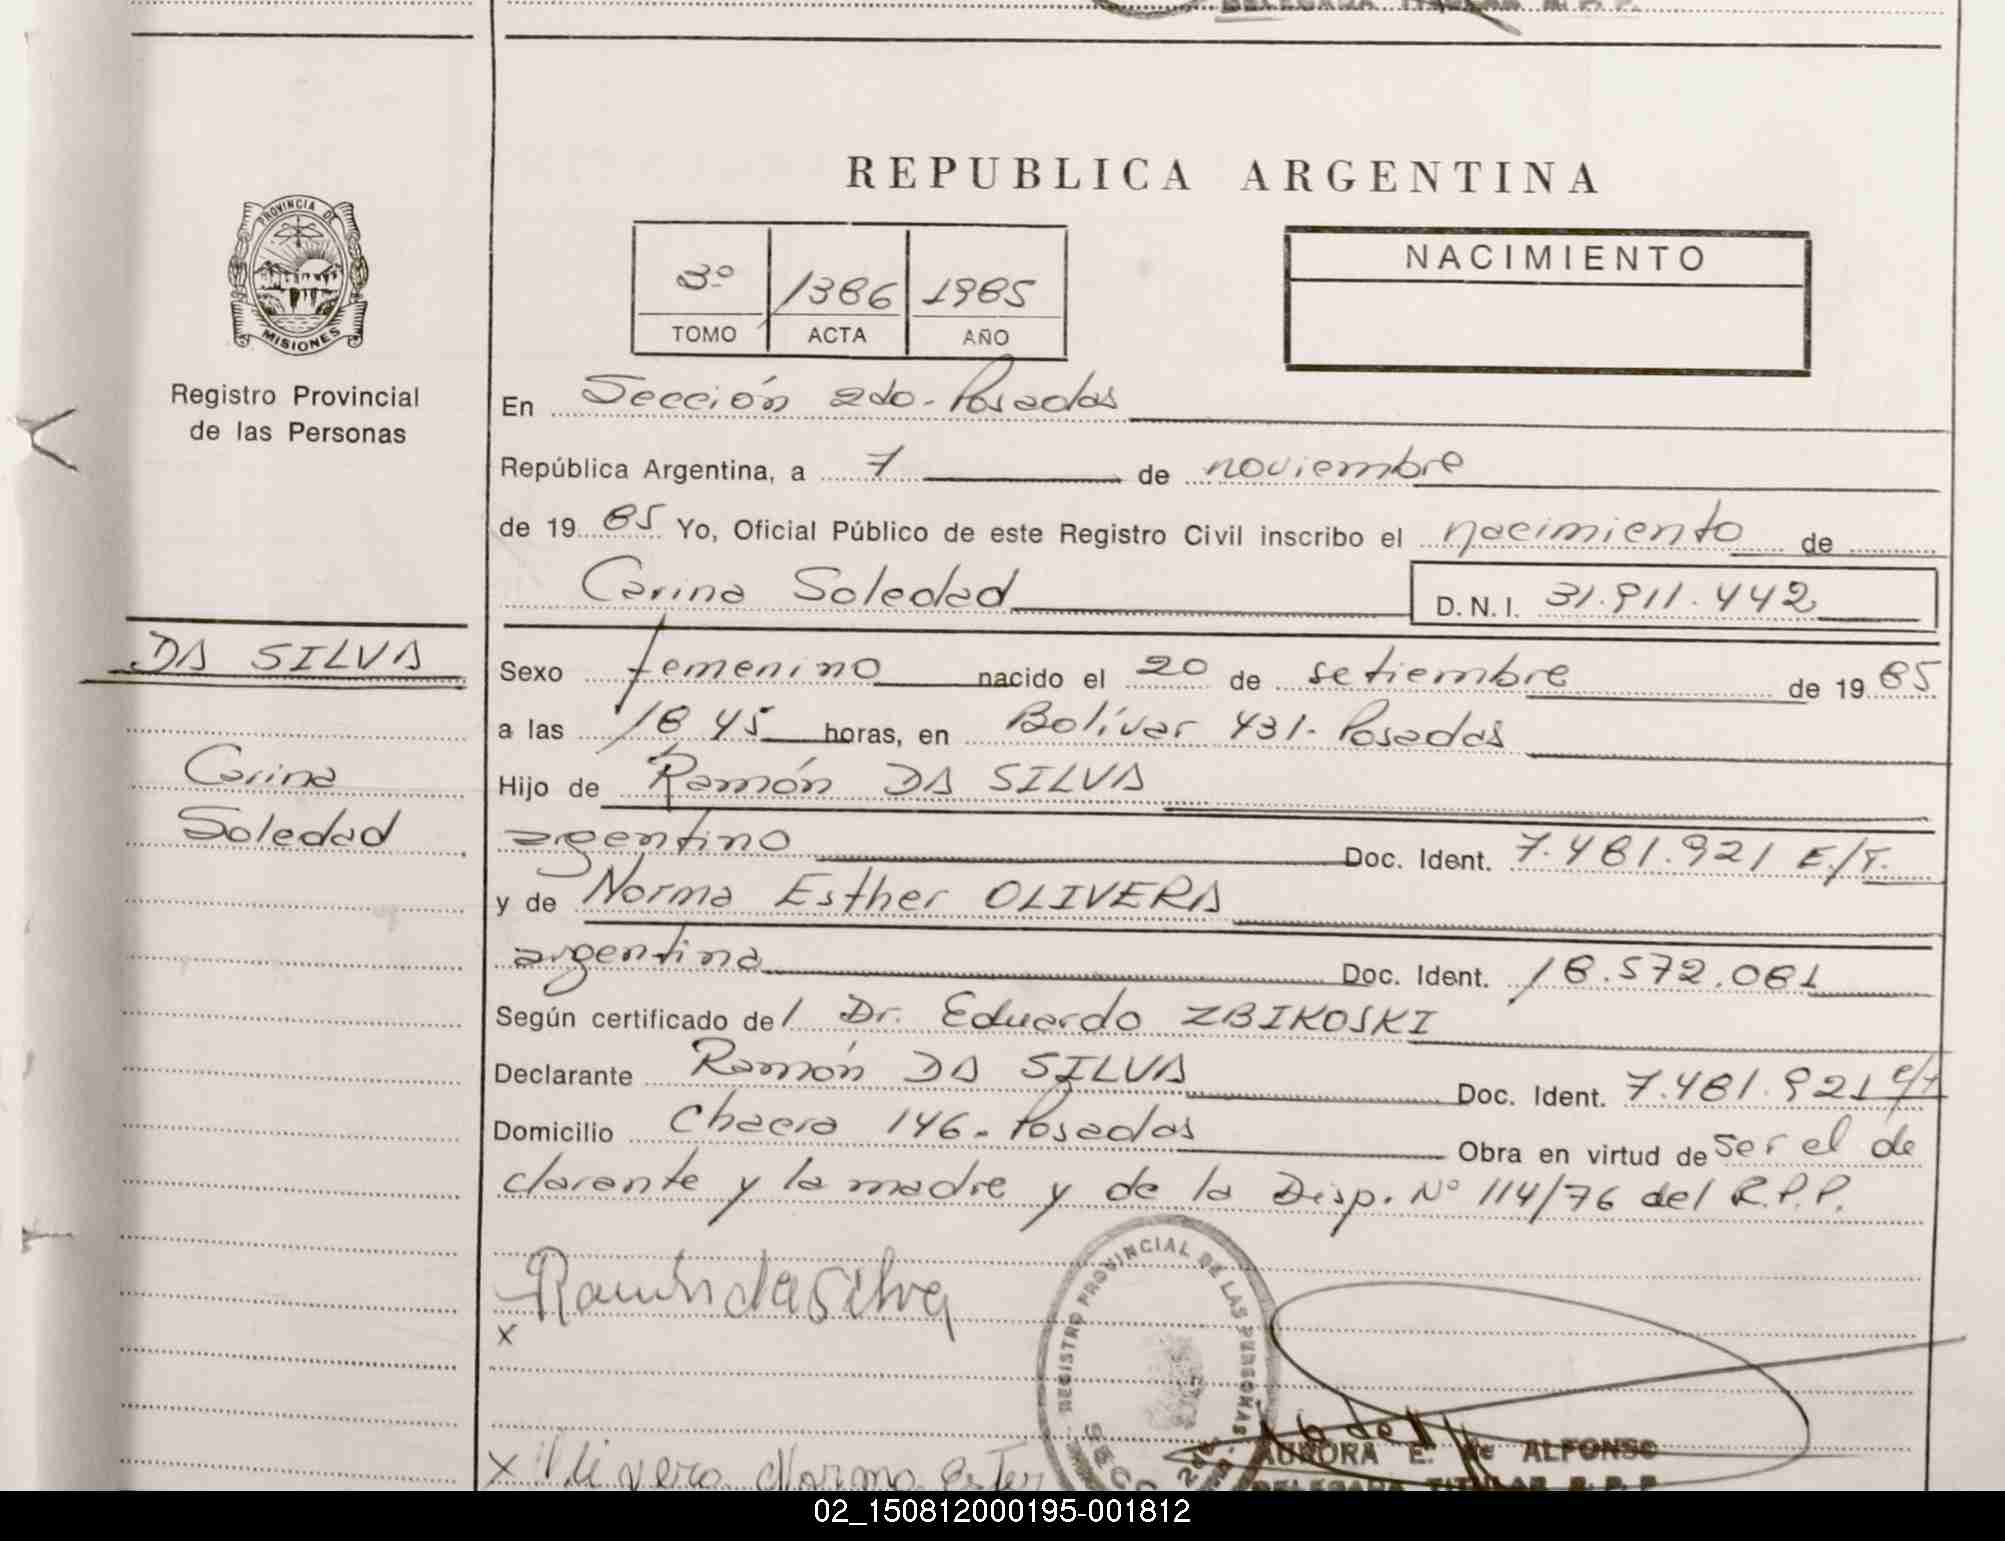 DELEGADA TITULAR R. P. P.
REPUBLICA ARGENTINA
PROVINCIA DE
MISIONES
3º 1386 1985
TOMO ACTA AÑO
NACIMIENTO
Registro Provincial
de las Personas
En Sección 2do. Posadas
República Argentina, a 7 de noviembre
de 1985 Yo, Oficial Público de este Registro Civil inscribo el nacimiento de
Carina Soledad D.N.I. 31.911.442
DA SILVA
Carina
Soledad
Sexo femenino nacido el 20 de setiembre de 1985
a las 18 45 horas, en Bolívar 431. Posadas
Hijo de Ramón DA SILVA
argentino Doc. Ident. 7.481.921 E./T.
y de Norma Esther OLIVERA
argentina Doc. Ident. 18.572.081
Según certificado del Dr. Eduardo ZBIKOSKI
Declarante Ramón DA SILVA Doc. Ident. 7.481.921 e/t
Domicilio Chacra 146. Posadas Obra en virtud de ser el de
clarante y la madre y de la Disp. Nº 114/76 del R.P.P.
Ramón da Silva
X
REGISTRO PROVINCIAL DE LAS PERSONAS
SECC 2da.
X Olivera Norma Ester
AURORA E. de ALFONSO
DELEGADA TITULAR R. P. P.
02_150812000195-001812